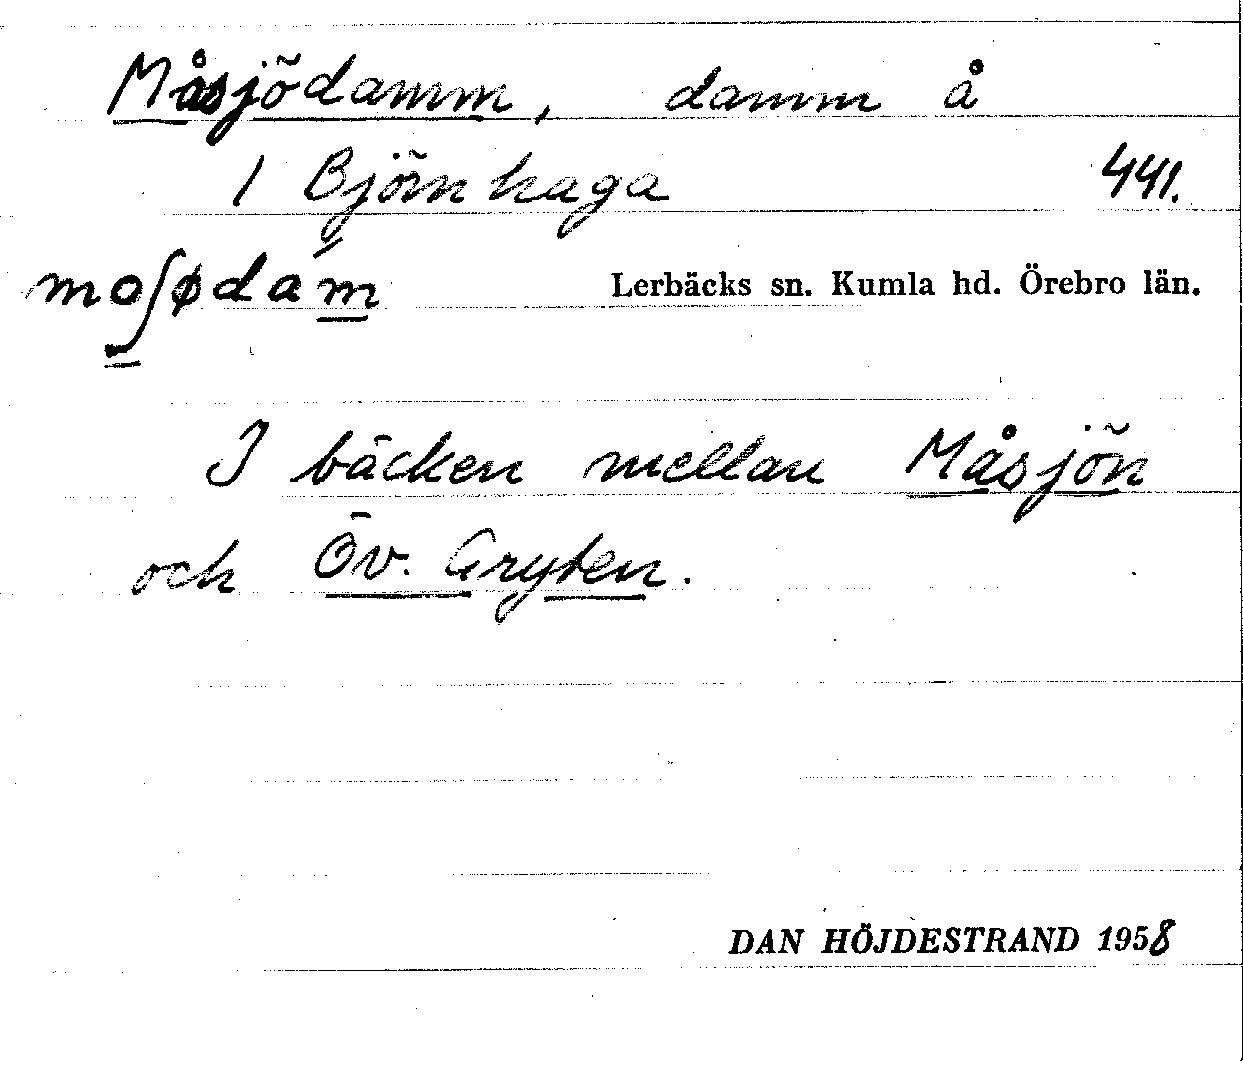 Måsjödamm, damm å
1 Björnhaga 441.
moʃødám Lerbäcks sn. Kumla hd. Örebro län.
I bäcken mellan Måsjön
och Öv. Gryten.
DAN HÖJDESTRAND 1958